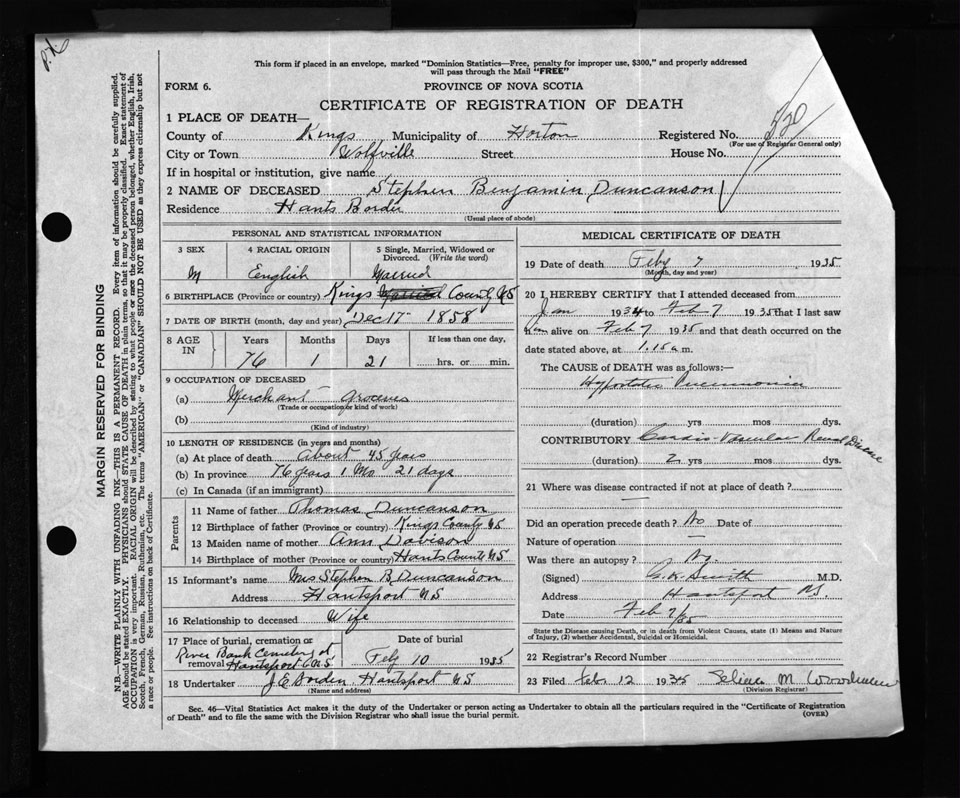 P.X.
This form if placed in an envelope, marked "Dominion Statistics—Free, penalty for improper use, $300," and properly addressed
will pass through the Mail "FREE"
FORM 6.
PROVINCE OF NOVA SCOTIA
CERTIFICATE OF REGISTRATION OF DEATH
1 PLACE OF DEATH—
County of Kings Municipality of Horton Registered No. 520
(For use of Registrar General only)
City or Town Wolfville Street House No.
If in hospital or institution, give name
2 NAME OF DECEASED Stephen Benjamin Duncanson
Residence Hants Border
(Usual place of abode)
PERSONAL AND STATISTICAL INFORMATION
3 SEX 4 RACIAL ORIGIN 5 Single, Married, Widowed or
Divorced. (Write the word)
M English Married
6 BIRTHPLACE (Province or country) Kings County NS
7 DATE OF BIRTH (month, day and year) Dec 17 1858
8 AGE IN Years Months Days If less than one day,
76 1 21 hrs. or min.
9 OCCUPATION OF DECEASED
(a) Merchant Groceries
(Trade or occupation or kind of work)
(b)
(Kind of industry)
10 LENGTH OF RESIDENCE (in years and months)
(a) At place of death About 45 years
(b) In province 76 years 1 Mo 21 days
(c) In Canada (if an immigrant)
Parents
11 Name of father Thomas Duncanson
12 Birthplace of father (Province or country) Kings County NS
13 Maiden name of mother Ann Davison
14 Birthplace of mother (Province or country) Hants County NS
15 Informant's name Mrs Stephen B Duncanson
Address Hantsport NS
16 Relationship to deceased Wife
17 Place of burial, cremation or removal Date of burial
River Bank Cemetery at
Hantsport NS Feby 10 1935
18 Undertaker J E Borden Hantsport NS
(Name and address)
MEDICAL CERTIFICATE OF DEATH
19 Date of death Feby 7 1935
(Month, day and year)
20 I HEREBY CERTIFY that I attended deceased from
Jan 1934 to Feb 7 1935 that I last saw
him alive on Feb 7 1935 and that death occurred on the
date stated above, at 1.15 a m.
The CAUSE of DEATH was as follows:—
Hypostatic Pneumonia
(duration) yrs mos dys.
CONTRIBUTORY Cardio-Vascular Renal Disease
(duration) 2 yrs mos dys.
21 Where was disease contracted if not at place of death? —
Did an operation precede death? No Date of
Nature of operation —
Was there an autopsy? No
(Signed) G. K. Smith M.D.
Address Hantsport NS.
Date Feb 9/35
State the Disease causing Death, or in death from Violent Causes, state (1) Means and Nature
of Injury, (2) whether Accidental, Suicidal or Homicidal.
22 Registrar's Record Number
23 Filed Feb. 12 1935 M
(Division Registrar)
Sec. 46—Vital Statistics Act makes it the duty of the Undertaker or person acting as Undertaker to obtain all the particulars required in the "Certificate of Registration
of Death" and to file the same with the Division Registrar who shall issue the burial permit.
(OVER)
MARGIN RESERVED FOR BINDING
N.B.—WRITE PLAINLY WITH UNFADING INK—THIS IS A PERMANENT RECORD. Every item of information should be carefully supplied.
AGE should be stated EXACTLY. PHYSICIANS should STATE CAUSE OF DEATH in plain terms, so that it may be properly classified. Exact statement of
OCCUPATION is very important. RACIAL ORIGIN will be described by stating to what people or race the deceased person belonged, whether English, Irish,
Scotch, French, German, Russian, Ruthenian, etc. The terms "AMERICAN" or "CANADIAN" SHOULD NOT BE USED as they express citizenship but not
a race or people. See instructions on back of Certificate.